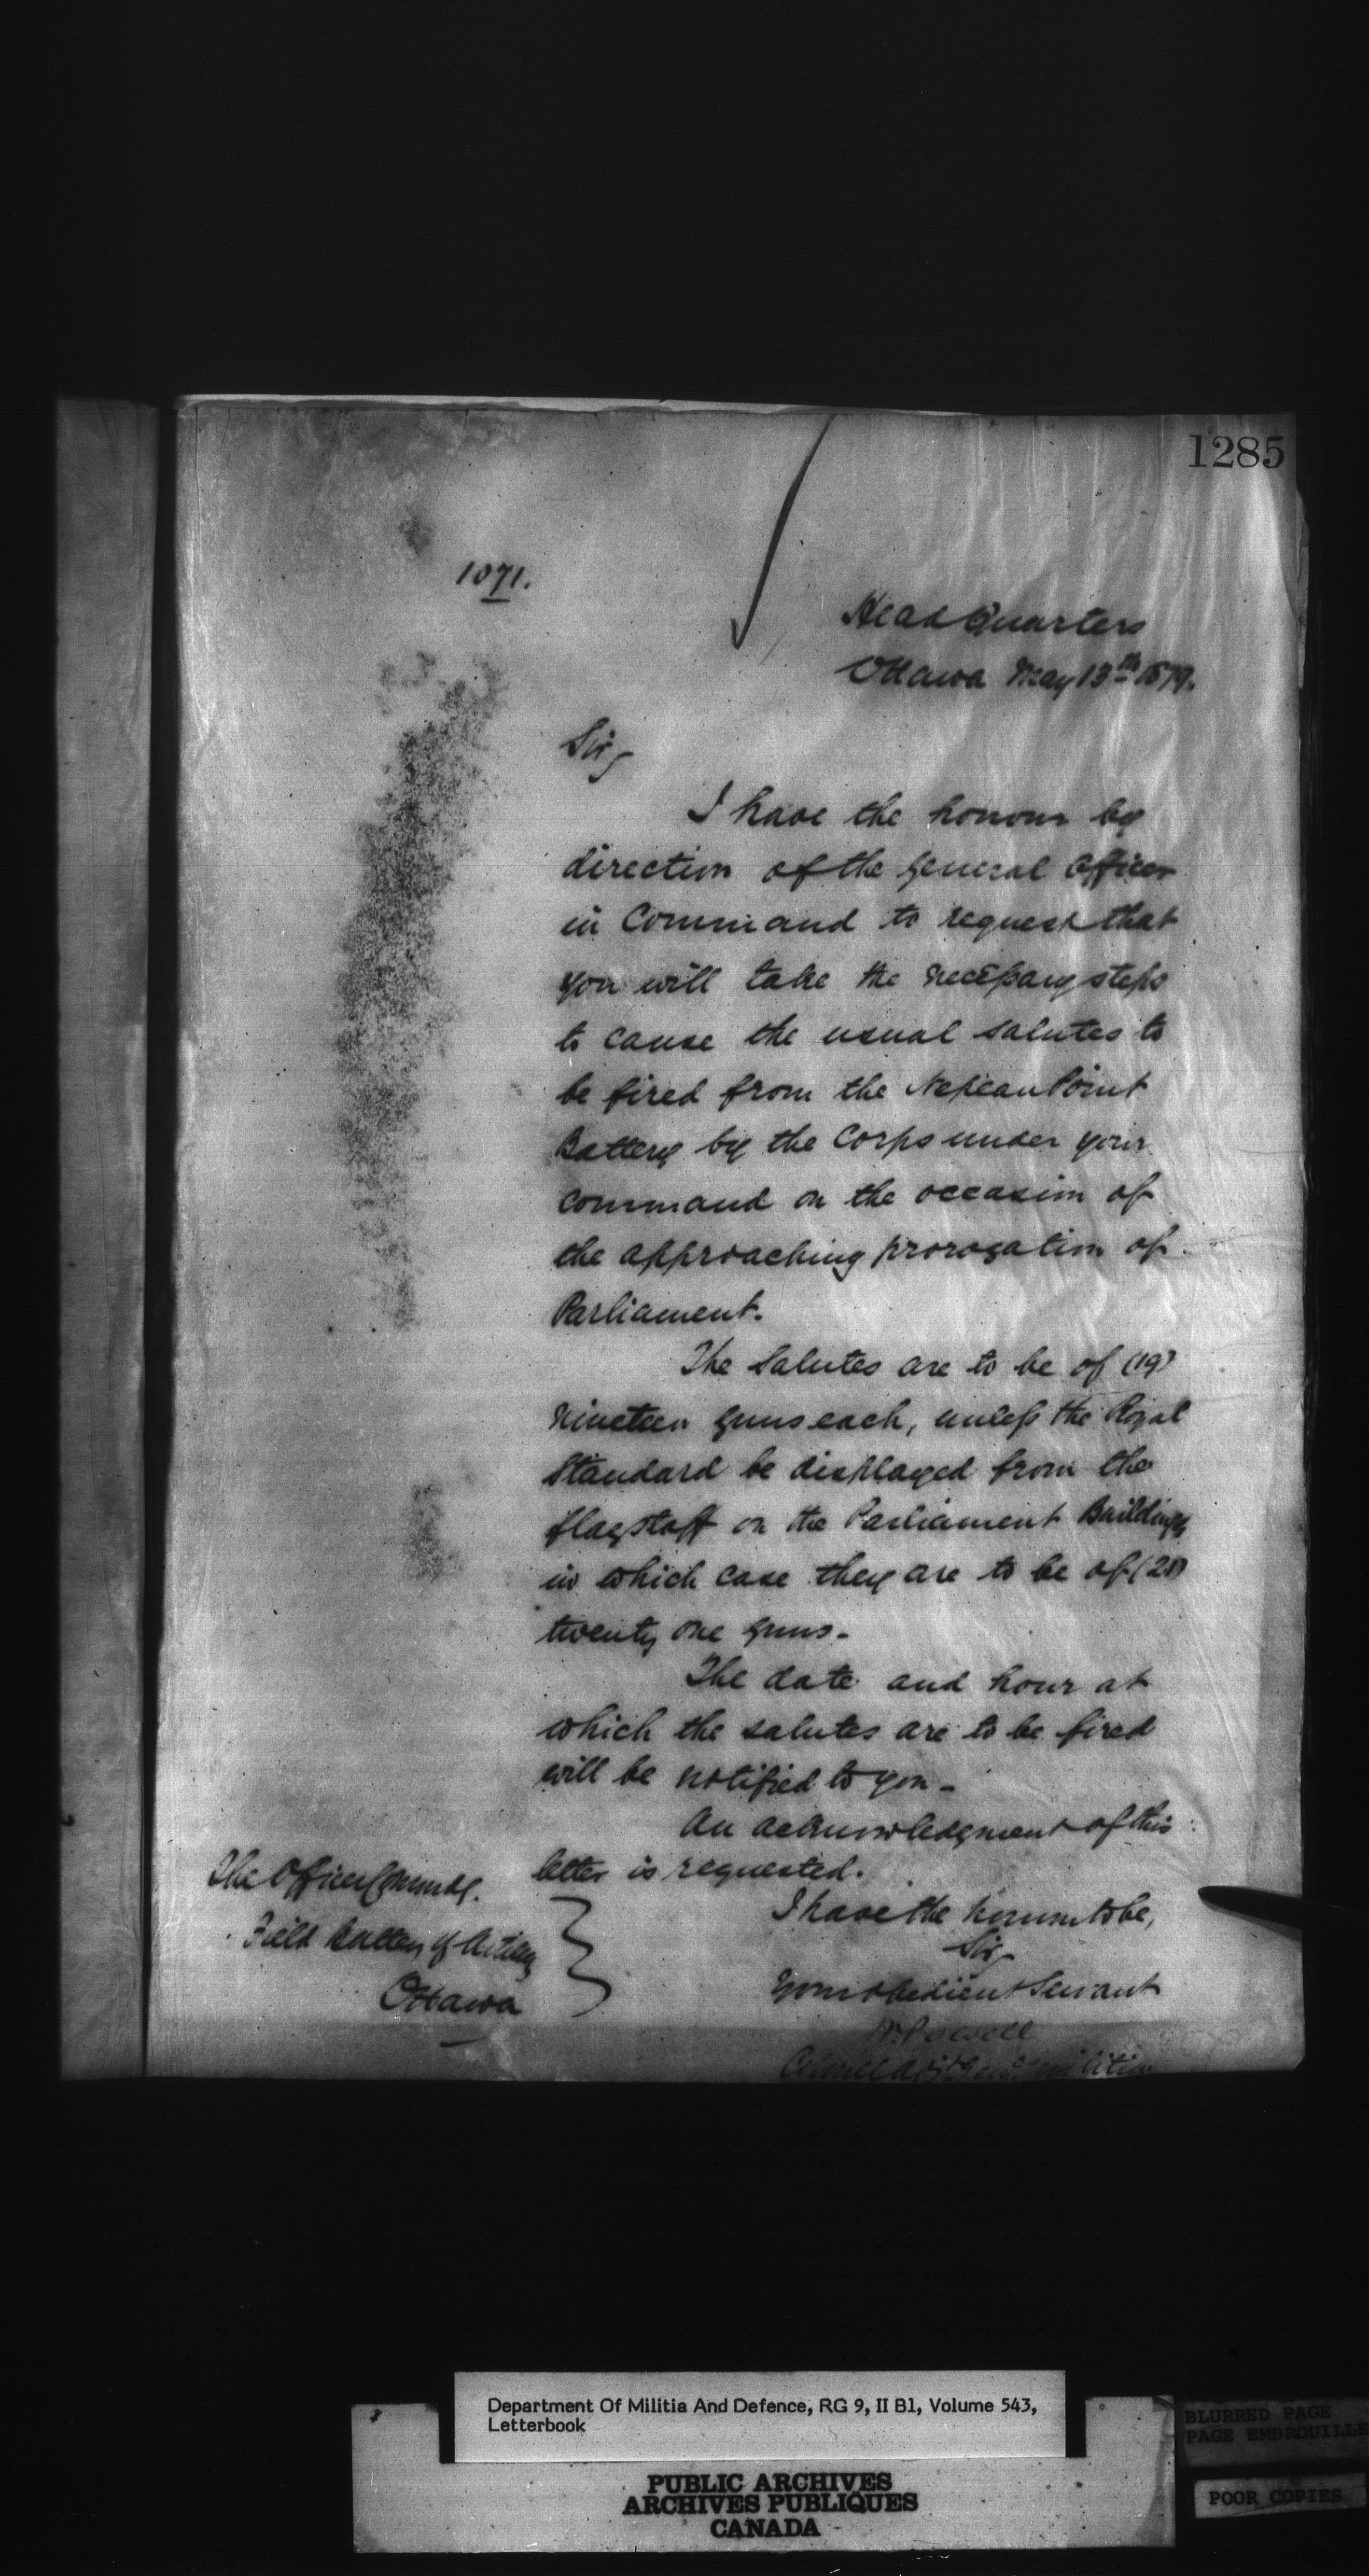 1285
1071.
Head Quarters
Ottawa May 13th 1879.
Sir,
I have the honour by
direction of the General Officer
in Command to request that
you will take the necessary steps
to cause the usual salutes to
be fired from the Nepean Point
Battery by the Corps under your
command on the occasion of
the approaching prorogation of
Parliament.
The Salutes are to be of (19)
nineteen guns each, unless the Royal
Standard be displayed from the
flagstaff on the Parliament Buildings
in which case they are to be of (21)
twenty one guns.
The date and hour at
which the salutes are to be fired
will be notified to you.
An acknowledgment of this
letter is requested.
I have the honour to be,
Sir,
Your obedient Servant
W. Powell
Colonel Adjt Genl Militia
The Officer Commdg.
Field Battery of Artillery
Ottawa
Department Of Militia And Defence, RG 9, II B1, Volume 543,
Letterbook
PUBLIC ARCHIVES
ARCHIVES PUBLIQUES
CANADA
BLURRED PAGE
PAGE EMBROUILLE
POOR COPIES